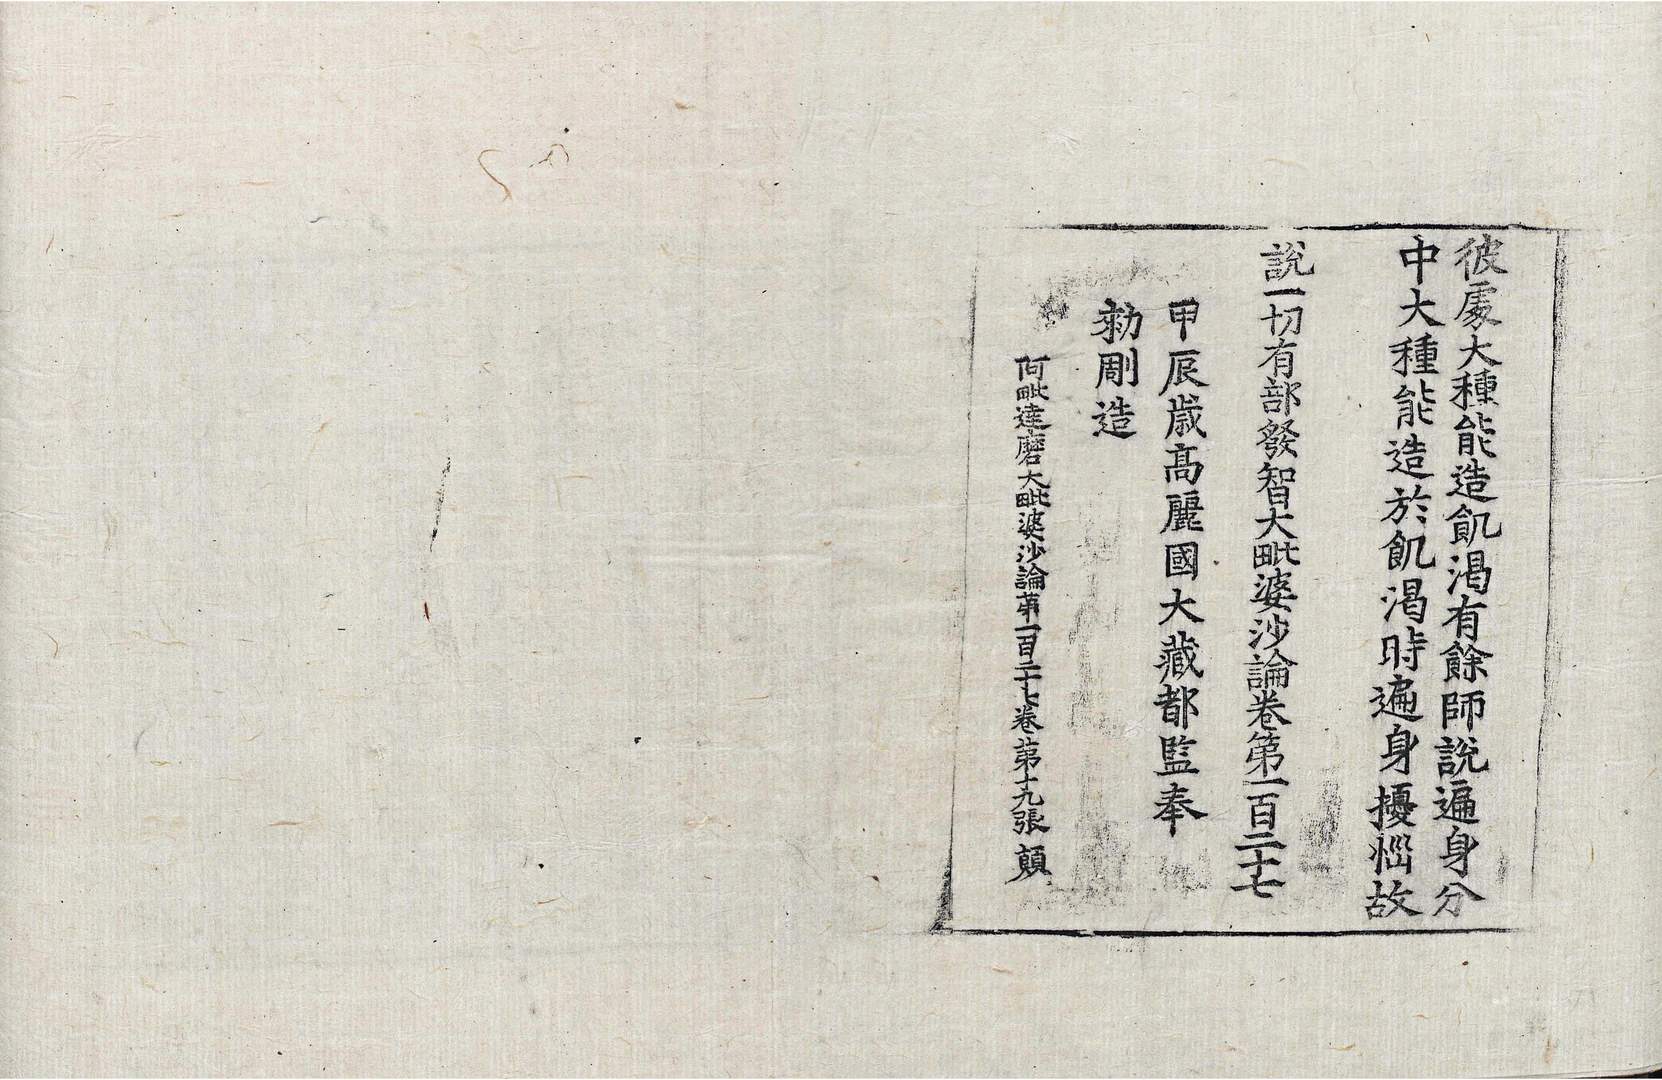 彼處大種能造飢渴有餘師說遍身分
中大種能造於飢渴時遍身擾惱故
說一切有部發智大毗婆沙論卷第一百二十七
甲辰歲高麗國大藏都監奉
勑彫造
阿毗達磨大毗婆沙論第一百二十七卷第十九張 顛